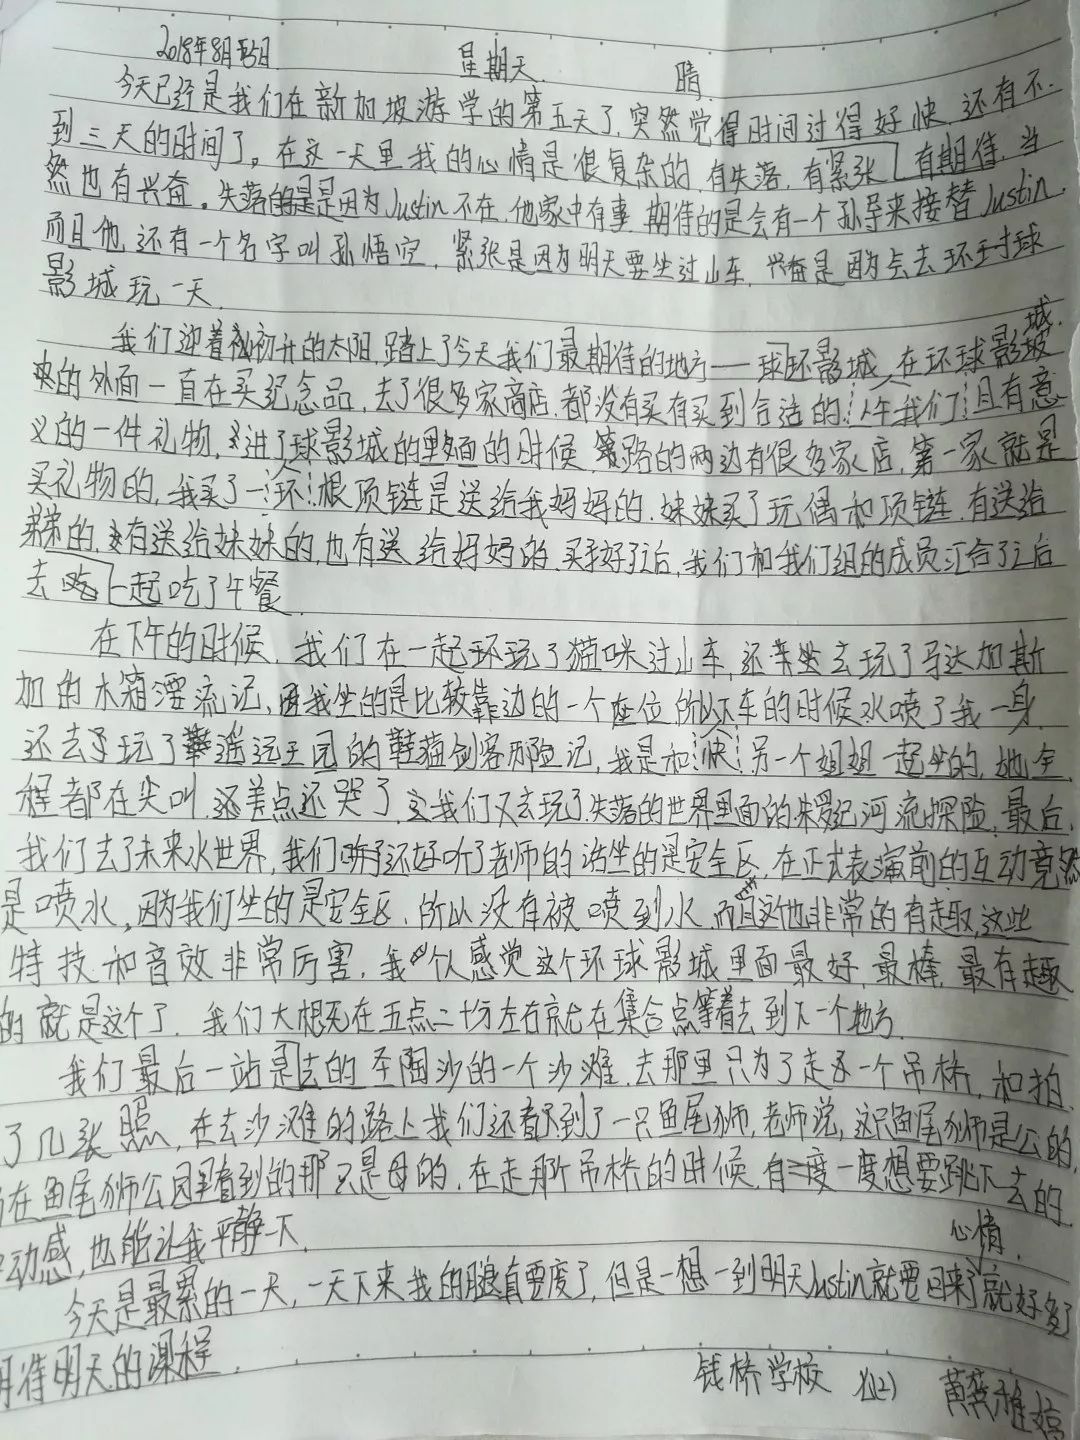 2018年8月5日 星期天 晴
今天已经是我们在新加坡游学的第五天了,突然觉得时间过得好快,还有不
到三天的时间了。在这一天里我的心情是很复杂的,有失落,有紧张,有期待,当
然也有兴奋。失落的是是因为Justin不在,他家中有事,期待的是会有一个孙导来接替Justin,
而且他,还有一个名字叫孙悟空,紧张是因为明天要坐过山车,兴奋是因为去环球
影城玩一天.
我们迎着初升的太阳,踏上了今天我们最期待的地方——球环影城,在环球影城
的外面一直在买纪念品,去了很多家商店,都没有买有买到合适的,人午我们且有意
义的一件礼物,进了球影城的里面的时候,路的两边有很多家店,第一家就是
买礼物的,我买了一环根项链是送给我妈妈的,妹妹买了玩偶和项链,有送给
弟弟的,有送给妹妹的,也有送给妈妈的,买好了后,我们和我们组的成员汇合了之后
去一起吃了午餐.
在下午的时候,我们在一起玩了猫咪过山车,还去玩了马达加斯
加的木箱漂流记,我坐的是比较靠边的一个座位,所以下车的时候水喷了我一身,
还去了玩了遥远王国的鞋猫剑客历险记,我是和快另一个姐姐一起坐的,她全
程都在尖叫,还差点还哭了,我们又去玩了失落的世界里面的朱罗纪河流探险,最后,
我们去了未来水世界,我们还好听了老师的话坐的是安全区,在正式表演前的互动竟然
是喷水,因为我们坐的是安全区,所以没有被喷到水,而且这也非常的有趣,这些
特技和音效非常厉害,我个人感觉这个环球影城里面最好,最棒,最有趣
的就是这个了,我们大概在五点二十分左右就在集合点等着去到下一个地方.
我们最后一站是去的圣陶沙的一个沙滩,去那里只为了走一个吊桥,和拍
了几张照,在去沙滩的路上我们还看到了一只鱼尾狮,老师说,这只鱼尾狮是公的,
在鱼尾狮公园里看到的那只是母的,在走那个吊桥的时候,有一度想要跳下去的
动感,也能让我平静一下心情.
今天是最累的一天,一天下来我的腿真要废了,但是一想一到明天Justin就要回来了就好多了
期待明天的课程.
钱桥学校 (12) 黄雅婷